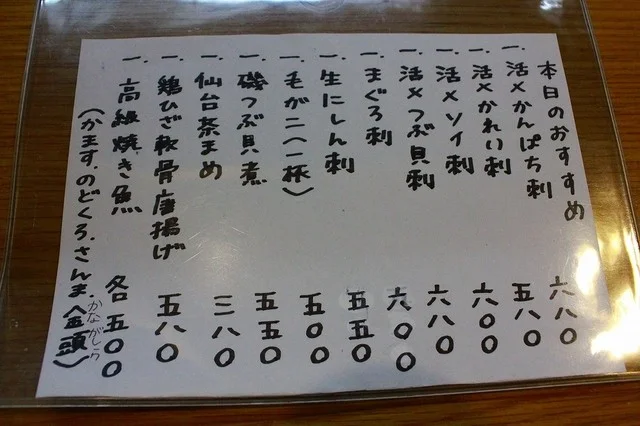 本日のおすすめ
一、活〆かんぱち刺 六八〇
一、活〆かれい刺 五八〇
一、活〆ソイ刺 六〇〇
一、活〆つぶ貝刺 六八〇
一、まぐろ刺 六〇〇
一、生にしん刺 五五〇
一、毛がニ(一杯) 五〇〇
一、磯つぶ貝煮 五五〇
一、仙台茶まめ 三八〇
一、鶏ひざ軟骨唐揚げ 五八〇
一、高級焼き魚 各五〇〇
(かます.のどくろ.さんま.金頭)
かながしら